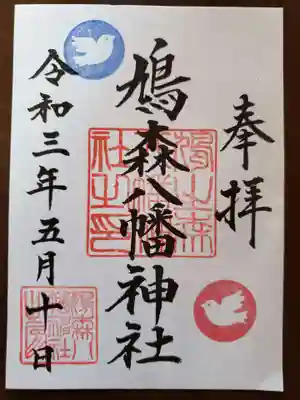 奉拝
鳩森八幡神社
令和三年五月十日